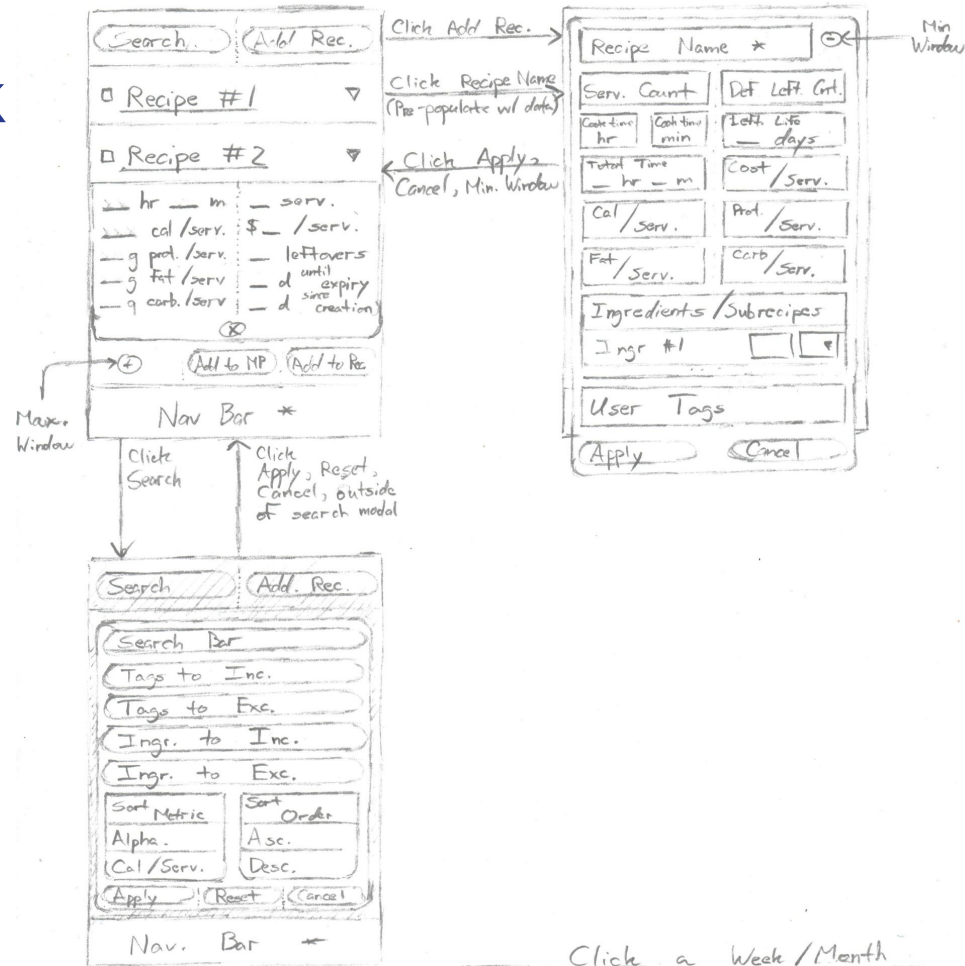 Search
Add Rec.
Recipe #1
Recipe #2
__ hr __ m
__ serv.
__ cal/serv.
$__ /serv.
__ g prot./serv.
__ leftovers
__ g fat/serv
__ d until expiry
__ g carb./serv
__ d since creation
Add to MP
Add to Rec
Nav Bar *
Max. Window
Click Add Rec.
Click Recipe Name
(Pre-populate w/ data)
Click Apply,
Cancel, Min. Window
Recipe Name *
Min Window
Serv. Count
Def Left. Cnt.
Cook time hr
Cook time min
Left. Life __ days
Total Time __ hr __ m
Cost /Serv.
Cal /Serv.
Prot. /Serv.
Fat /Serv.
Carb /Serv.
Ingredients/Subrecipes
Ingr #1
User Tags
Apply
Cancel
Click
Search
Click
Apply, Reset,
Cancel, outside
of search modal
Search
Add. Rec.
Search Bar
Tags to Inc.
Tags to Exc.
Ingr. to Inc.
Ingr. to Exc.
Sort Metric
Sort Order
Alpha.
Asc.
Cal/Serv.
Desc.
Apply
Reset
Cancel
Nav. Bar *
Click a Week/Month